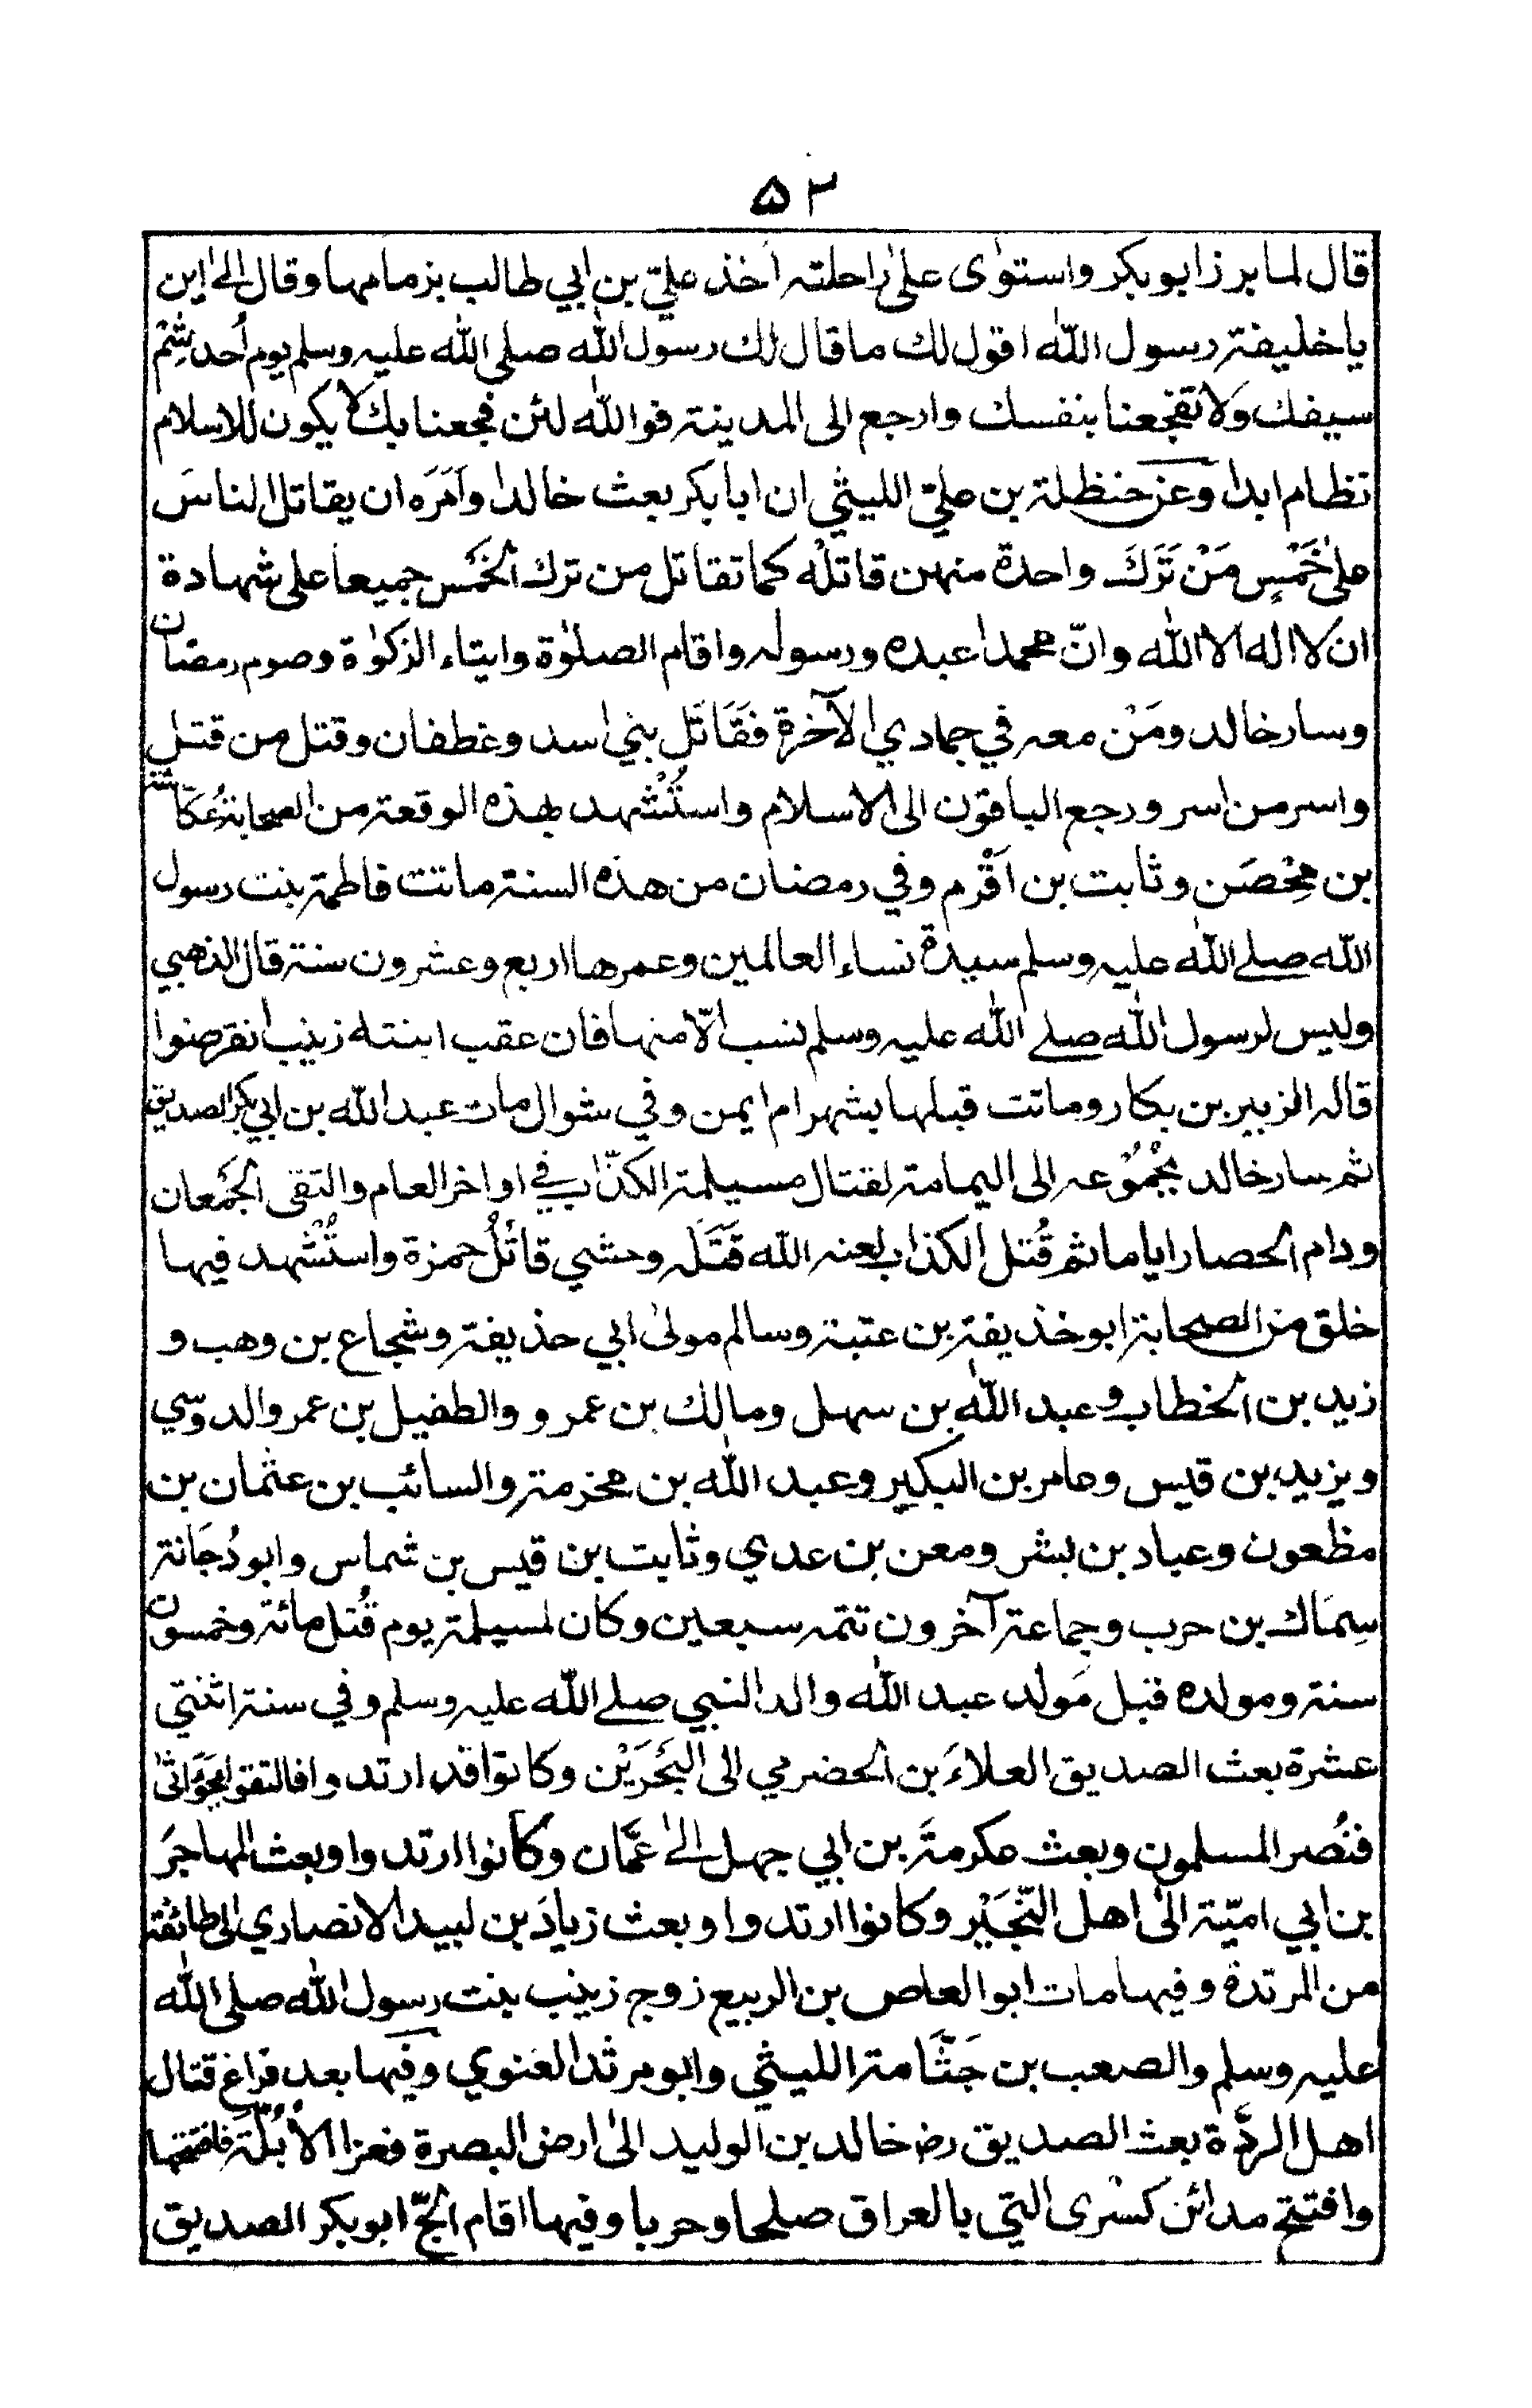 ۵۲
قال لما برز ابو بكر واستوٰى علىٰ راحلته اخذ علي بن ابي طالب بزمامها وقال الىٰ اين
يا خليفة رسول الله اقول لك ما قال لك رسول الله صلى الله عليه وسلم يوم اُحد شِمْ
سيفك ولا تفجعنا بنفسك وارجع الى المدينة فوالله لئن فجعنا بك لا يكون للاسلام
نظام ابدا وعن حنظلة بن علي الليثي ان ابا بكر بعث خالدا وأمَرَه ان يقاتل الناسَ
علىٰ خَمْسٍ مَنْ تَرَكَ واحدة منهن قاتلْه كما تقاتل من ترك الخَمْس جميعا على شهادة
ان لا اله الا الله وانّ محمدا عبده ورسوله واقام الصلوٰة وايتاء الزكوٰة وصوم رمضان
وسار خالد ومَنْ معه في جمادي الآخرة فقَاتَل بني اسد وغطفان وقتل من قتل
واسر من اسر ورجع الباقون الى الاسلام واستُشْهد بهذه الوقعة من الصحابة عُكّاشة
بن مِحْصَن وثابت بن اَقْرم وفي رمضان من هذه السنة ماتت فاطمة بنت رسول
الله صلے الله عليه وسلم سيدة نساء العالمين وعمرها اربع وعشرون سنة قال الذهبي
وليس لرسول الله صلے الله عليه وسلم نسب الّا منها فان عقب ابنته زينب انقرضوا
قاله الزبير بن بكار وماتت قبلها بشهر ام ايمن وفي شوال مات عبد الله بن ابي بكر الصديق
ثم سار خالد بجُمُوْعه الى اليمامة لقتال مسيلمة الكذّاب في اواخر العام والتقى الجَمْعان
ودام الحصار اياما ثم قُتل الكذاب لعنه الله قَتَلَه وحشي قاتلُ حمزة واستُشْهد فيها
خلق من الصحابة ابو حذيفة بن عتبة وسالم مولىٰ ابي حذيفة وشجاع بن وهب و
زيد بن الخطاب وعبد الله بن سهل ومالك بن عمرو والطفيل بن عمرو الدوسي
ويزيد بن قيس وعامر بن البكير وعبد الله بن مخرمة والسائب بن عثمان بن
مظعون وعباد بن بشر ومعن بن عدي وثابت بن قيس بن شماس وابو دُجَانة
سِمَاك بن حرب وجماعة آخرون تتمه سبعين وكان لمسيلمة يوم قُتل مائة وخمسون
سنة ومولده قبل مَولد عبد الله والد النبي صلے الله عليه وسلم وفي سنة اثنتي
عشرة بعث الصديق العلاءَ بن الحضرمي الى البَحْرَيْن وكانوا قد ارتدوا فالتقوا بجَوَاثىٰ
فنُصر المسلمون وبعث عكرمةَ بن ابي جهل الىٰ عَمّان وكانوا ارتدوا وبعث المهاجرَ
بن ابي اميّة الىٰ اهل النّجَيْر وكانوا ارتدوا وبعث زيادَ بن لبيد الانصاري الى طائفة
من المرتدة وفيها مات ابو العاص بن الربيع زوج زينب بنت رسول الله صلى الله
عليه وسلم والصعب بن جَثّامة الليثي وابو مرثد الغنوي وفيها بعد فراغ قتال
اهل الرِدّة بعث الصديق رض خالد بن الوليد الىٰ ارض البصرة فغزا الاُبُلّة فافتتحها
وافتتح مدائن كسْرى التي بالعراق صلحا وحربا وفيها اقام الحجّ ابو بكر الصديق